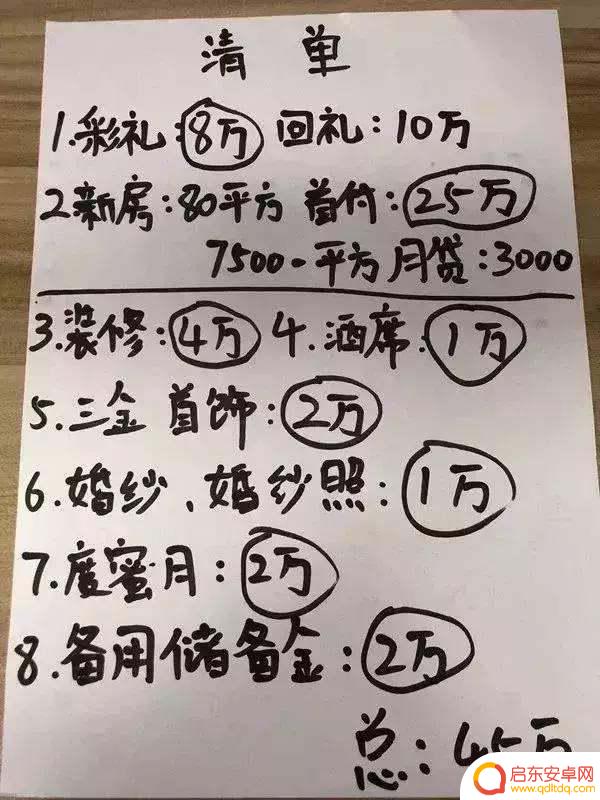 清单
1.彩礼:8万 回礼:10万
2.新房:80平方 首付:25万
7500一平方 月贷:3000
3.装修:4万 4.酒席:1万
5.三金首饰:2万
6.婚纱、婚纱照:1万
7.度蜜月:2万
8.备用储备金:2万
总:45万
启东安卓网
www.qdltdq.com